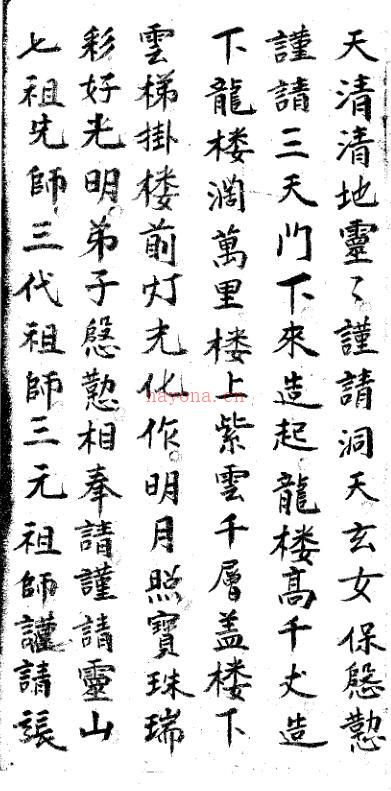 天清清地靈〻謹請洞天玄女保慇懃
謹請三天门下來造起龍楼高千丈造
下龍楼濶萬里楼上紫雲千層盖楼下
雲梯掛楼前灯光化作明月照寶珠瑞
彩好光明弟子慇懃相奉請謹請靈山
七祖先師三代祖師三元祖師謹請張
nayona.cn